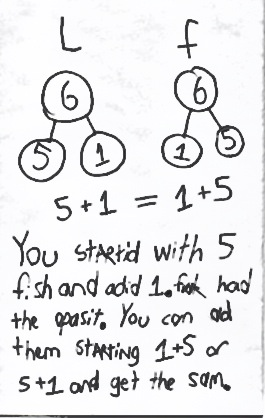 L f
6 6
5 1 1 5
5+1 = 1+5
You startid with 5
fish and add 1. had
the oposit. You can ad
them starting 1+5 or
5+1 and get the sam.